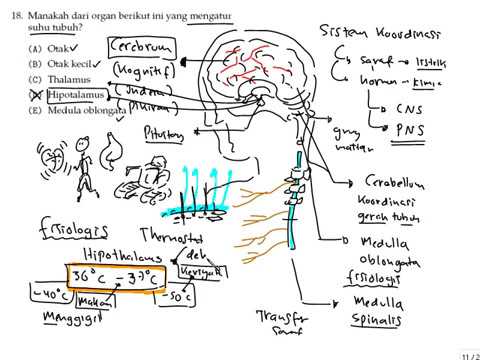 18. Manakah dari organ berikut ini yang mengatur
suhu tubuh?
(A) Otak
(B) Otak kecil
(C) Thalamus
(D) Hipotalamus
(E) Medula oblongata
Cerebrum
(kognitif)
(indera)
Pituitary
Sistem Koordinasi
saraf → listrik
hormon → kimia
CNS
PNS
grey
matter
Cerabellum
Koordinasi
gerak tubuh
Medulla
oblongata
fisiologis
Medulla
spinalis
Transfer
saraf
fisiologis
Thermostat
Hipothalamus
36°C - 37°C
-40°C
Makan
-50°C
Keringat
Menggigil
11 / 2